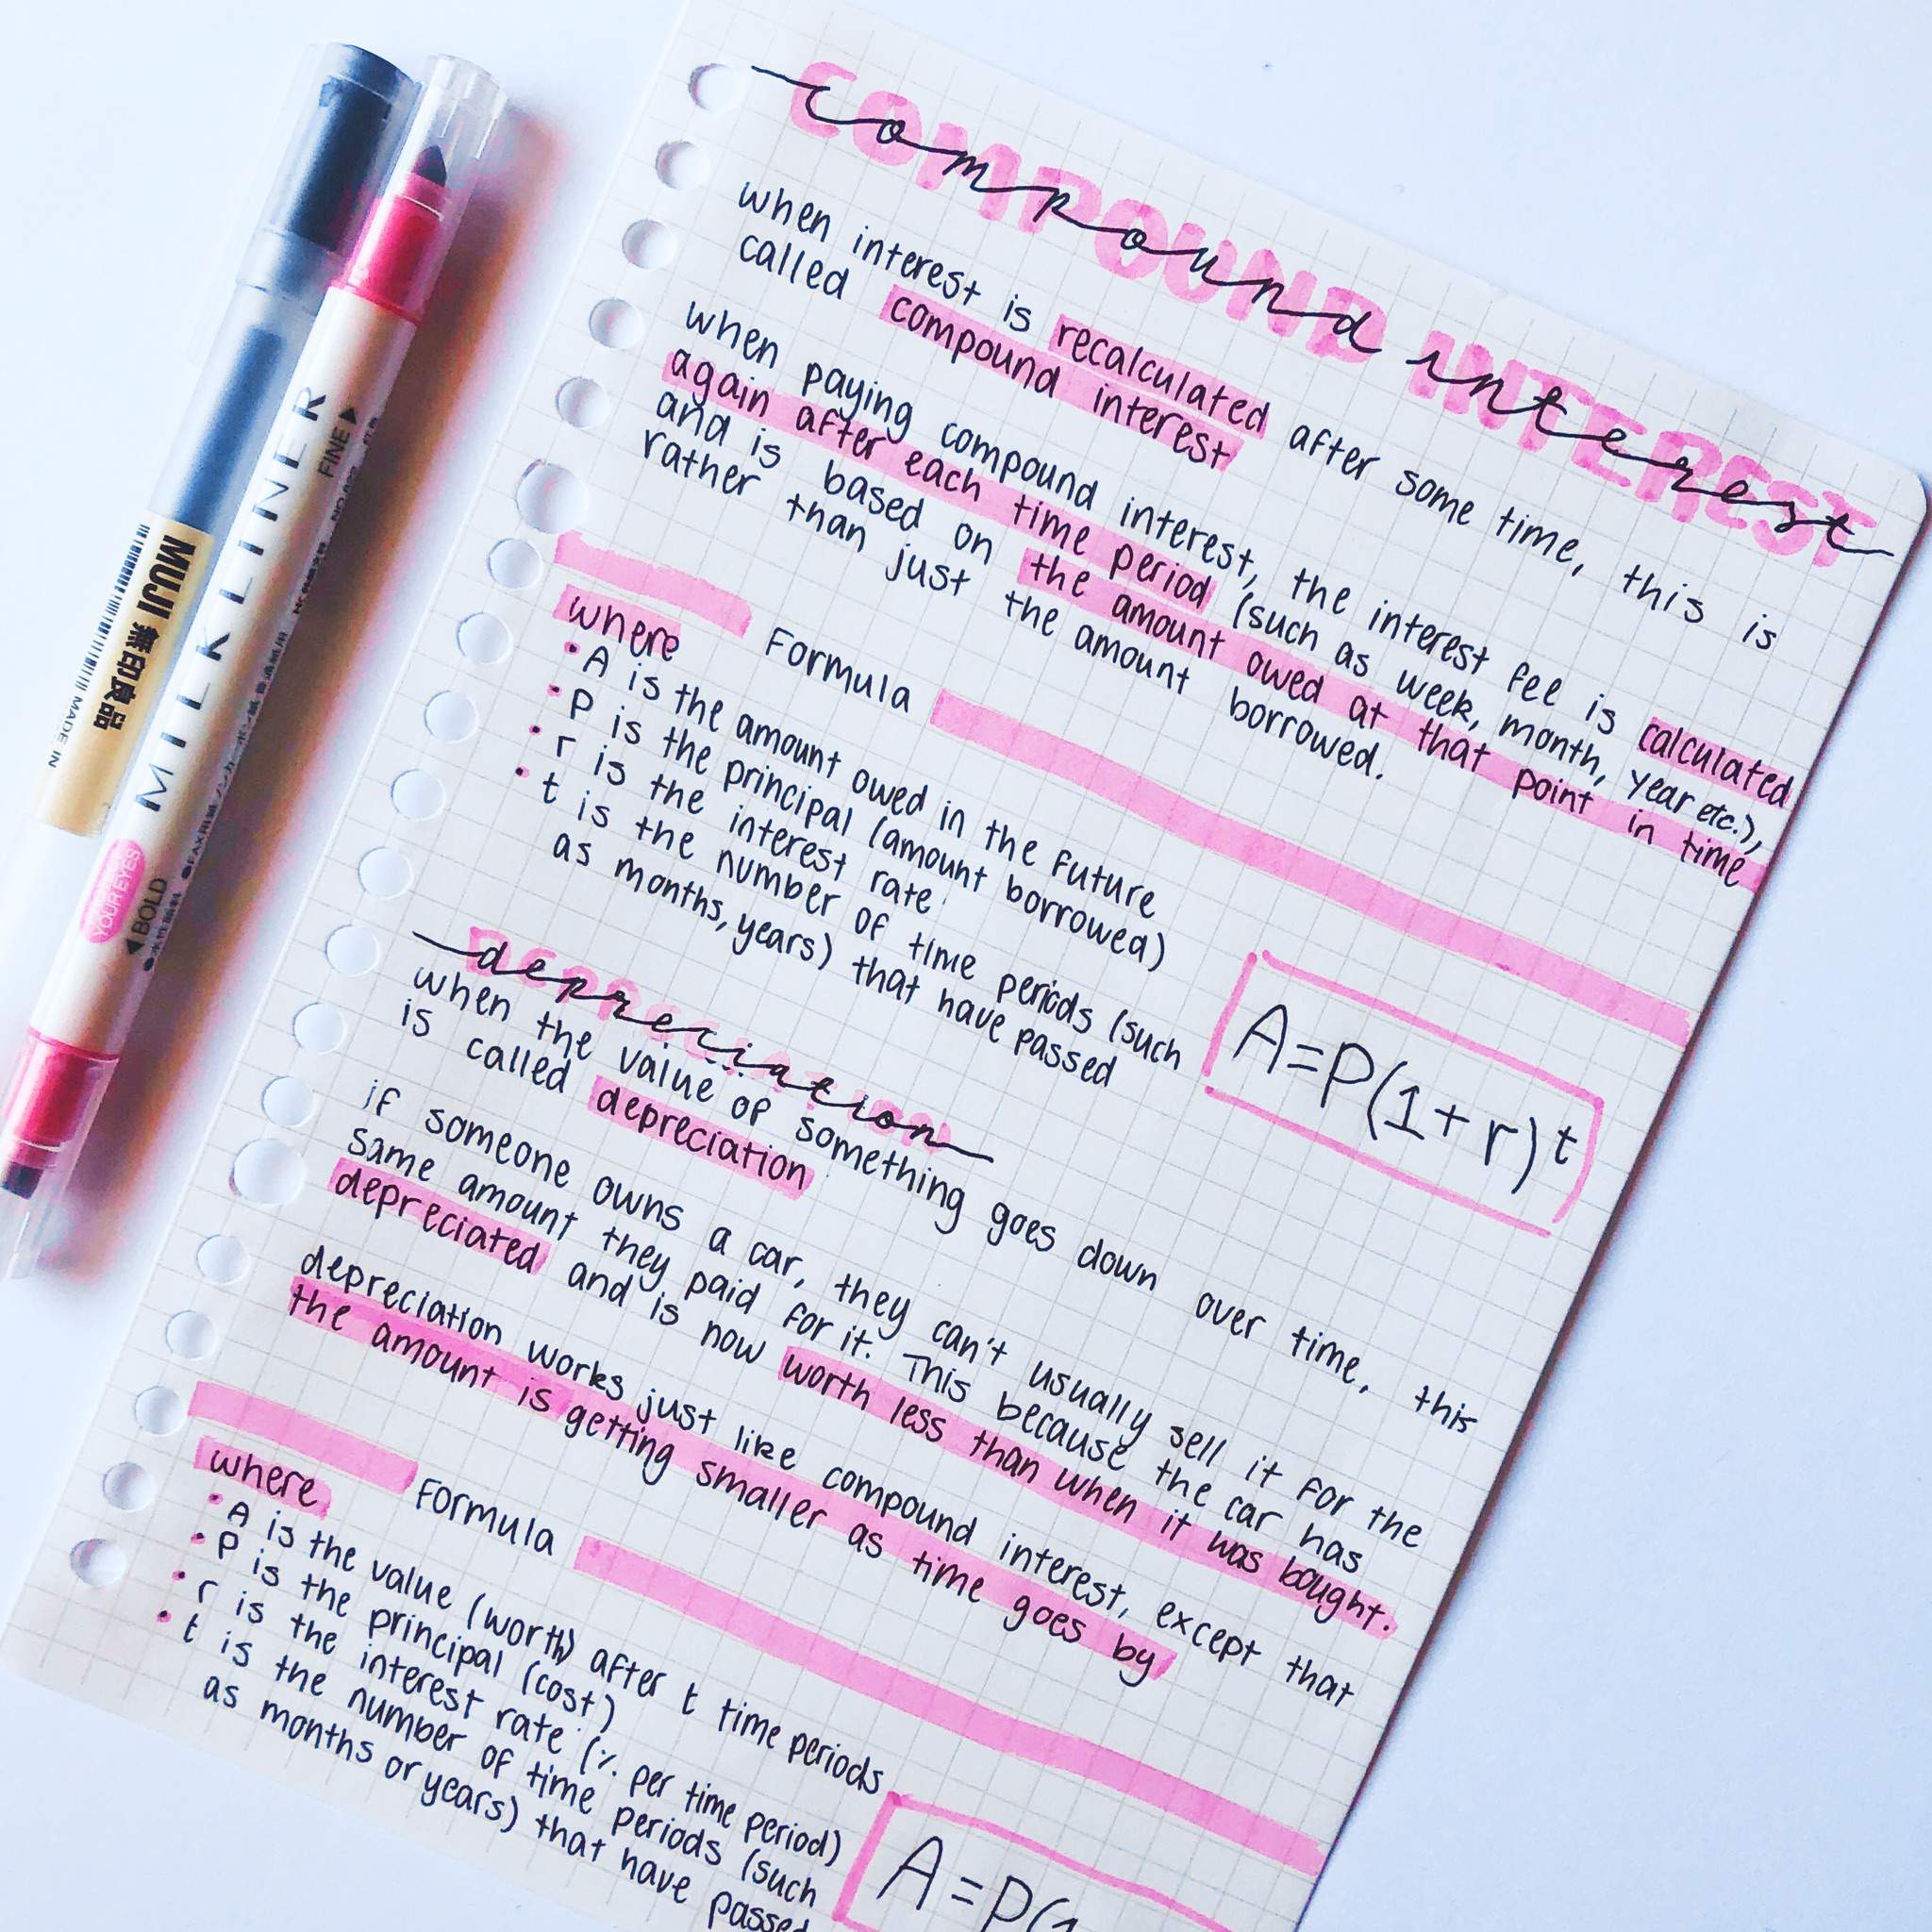 compound interest
COMPOUND INTEREST
when interest is recalculated after some time, this is
called compound interest
when paying compound interest, the interest fee is calculated
again after each time period (such as week, month, year etc.),
and is based on the amount owed at that point in time
rather than just the amount borrowed.
Formula
where
• A is the amount owed in the future
• P is the principal (amount borrowed)
• r is the interest rate
• t is the number of time periods (such
as months, years) that have passed
A=P(1+r)^t
depreciation
DEPRECIATION
when the value of something goes down over time, this
is called depreciation
if someone owns a car, they can't usually sell it for the
same amount they paid for it. This because the car has
depreciated and is now worth less than when it was bought.
depreciation works just like compound interest, except that
the amount is getting smaller as time goes by
Formula
where
• A is the value (worth) after t time periods
• P is the principal (cost)
• r is the interest rate (% per time period)
• t is the number of time periods (such
as months or years) that have passed
A=P(1
MUJI 無印良品
MADE IN
MILKLINER
FINE▶
YOUR EYES
◀BOLD